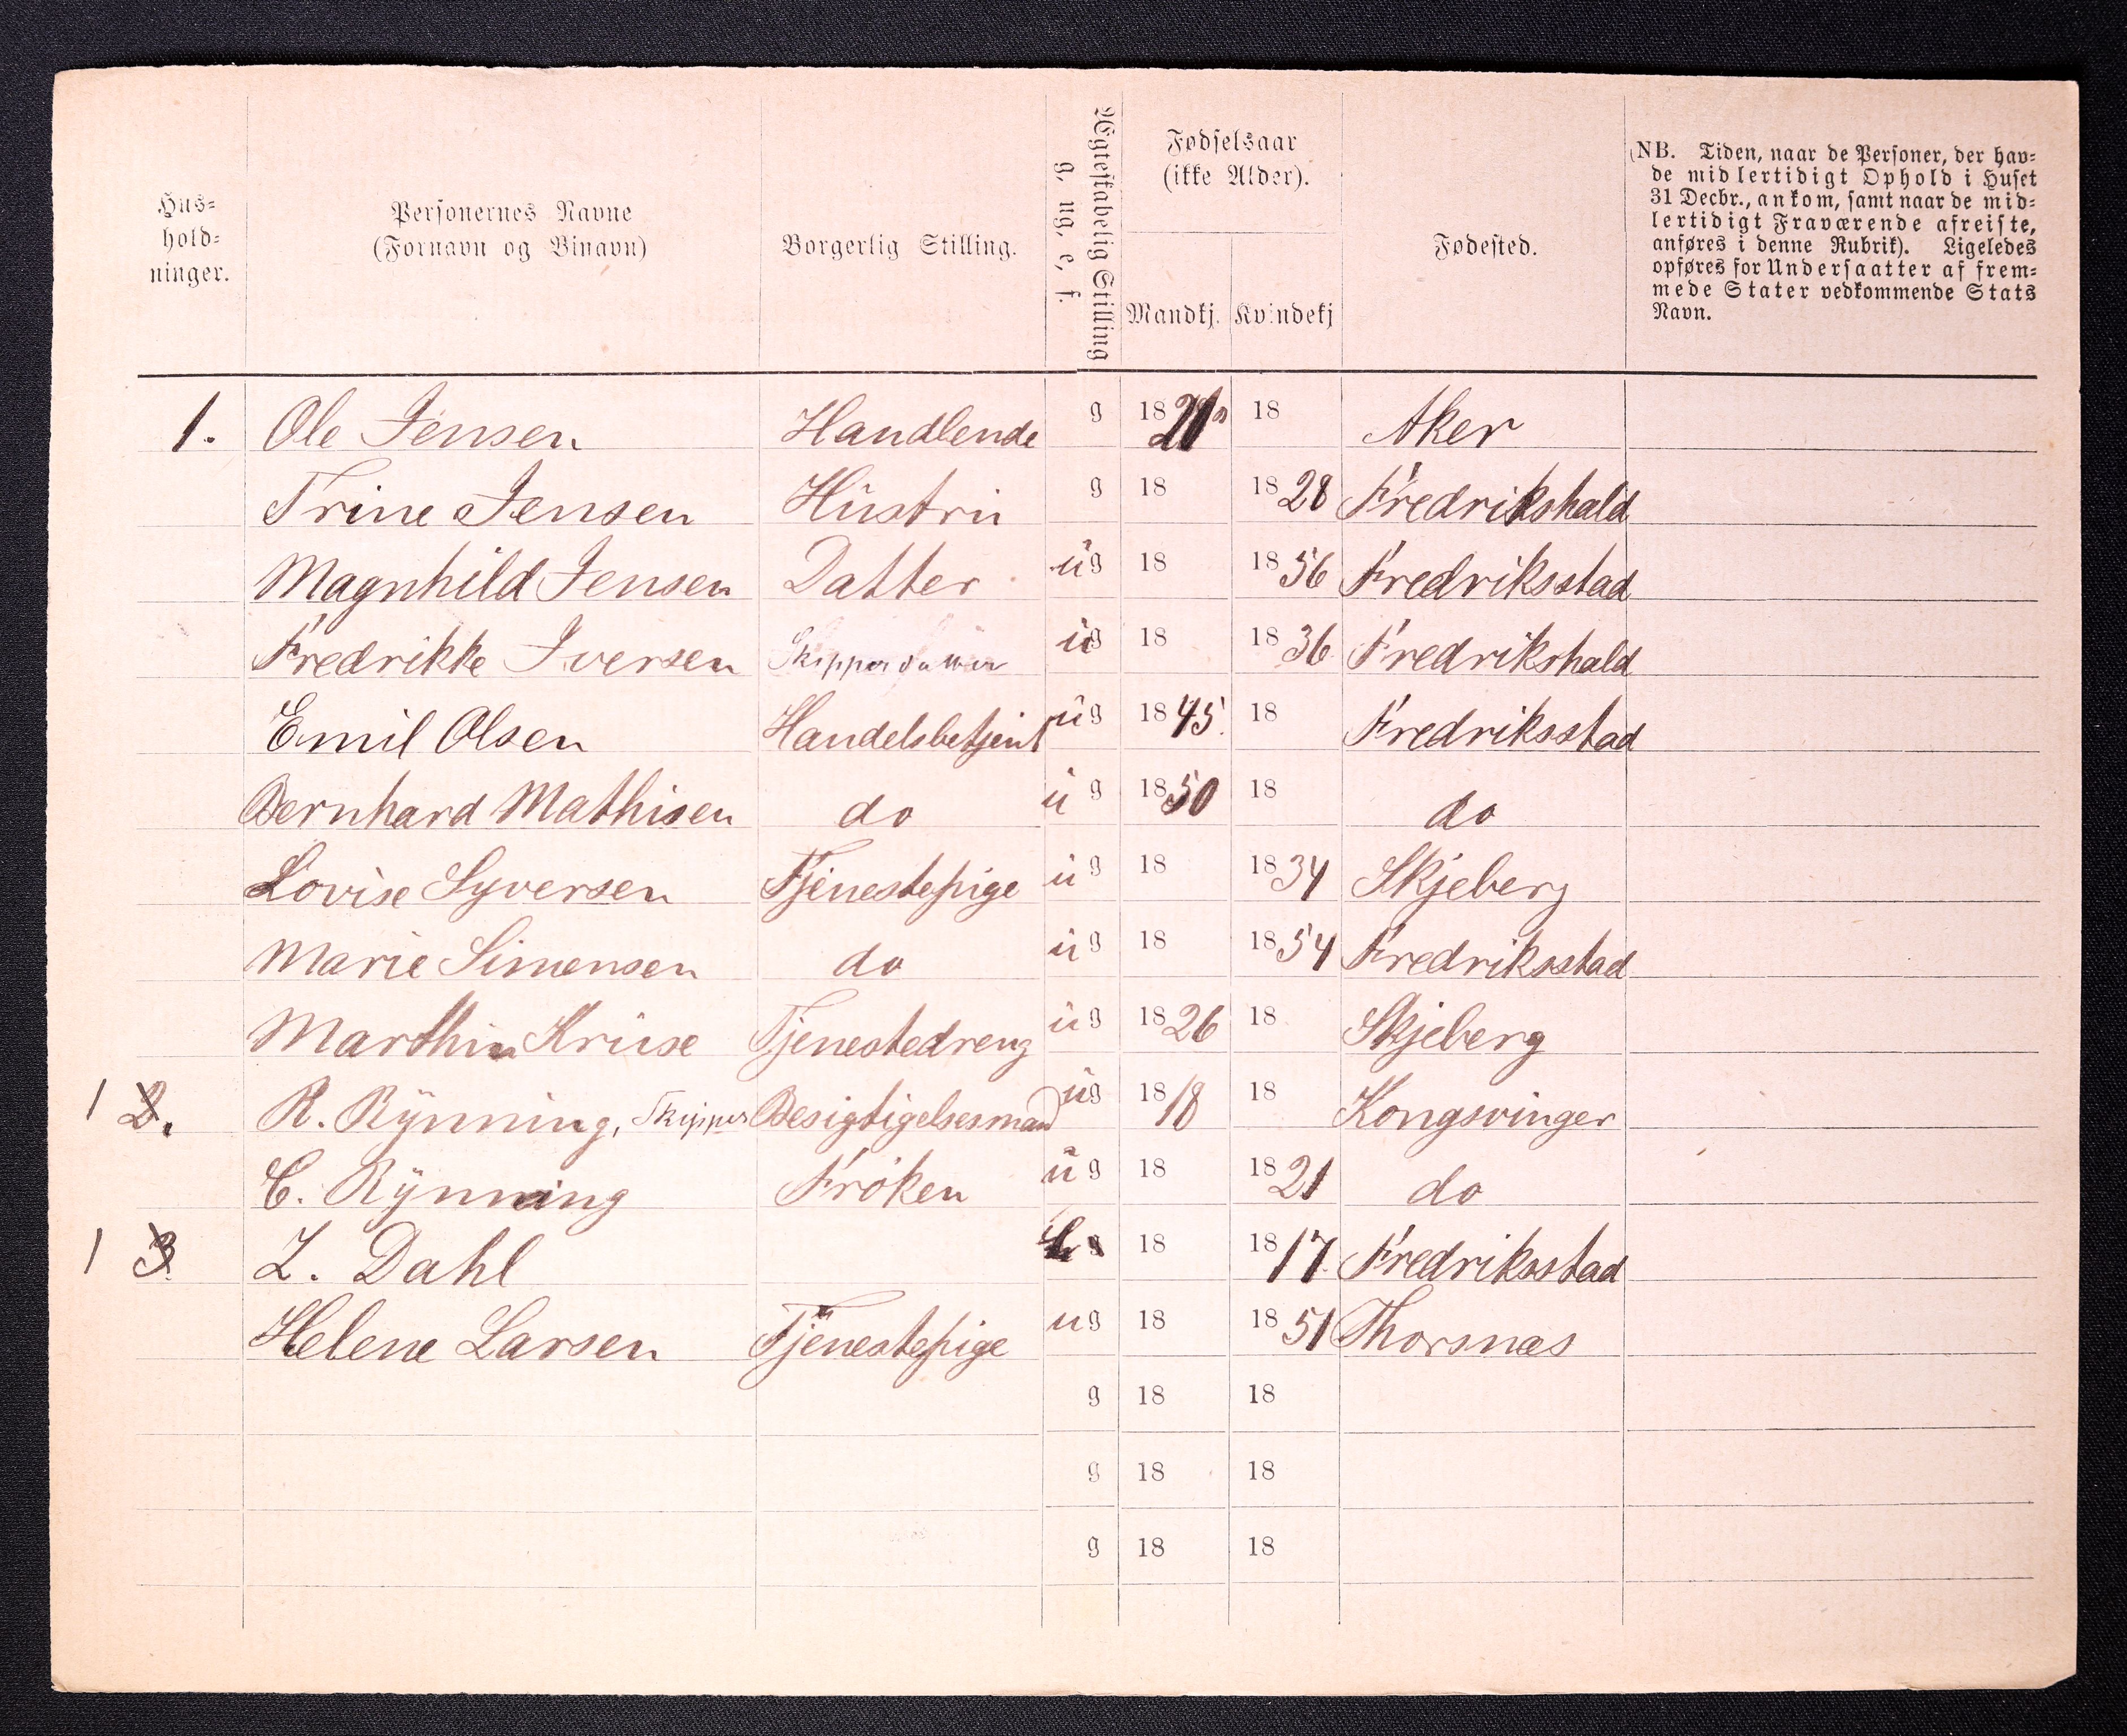 Hus-
hold-
ninger.
Personernes Navne
(Fornavn og Binavn)
Borgerlig Stilling.
Ægteskabelig Stilling
g, ug, e, f.
Fødselsaar
(ikke Alder).
Mandkj. Kvindekj
Fødested.
(NB. Tiden, naar de Personer, der hav-
de midlertidigt Ophold i Huset
31 Decbr., ankom, samt naar de mid-
lertidigt Fraværende afreiste,
anføres i denne Rubrik). Ligeledes
opføres for Undersaatter af frem-
mede Stater vedkommende Stats
Navn.
1. Ole Jensen Handlende g 18 18 Aker
Trine Jensen Hustru g 18 1828 Fredrikshald
Magnhild Jensen Datter ug 18 1856 Fredriksstad
Fredrikke Iversen Skipperdatter ug 18 1836 Fredrikshald
Emil Olsen Handelsbetjent ug 1845. 18 Fredriksstad
Bernhard Mathisen do ug 1850 18 do
Lovise Syversen Tjenestepige ug 18 1834 Skjeberg
Marie Simensen do ug 18 1854 Fredriksstad
Marthin Kruse Tjenestedreng ug 1826 18 Skjeberg
1 2. R. Rynning, Skipper Besigtigelsesmand ug 1818 18 Kongsvinger
C. Rynning Frøken ug 18 1821 do
1 3. L. Dahl 18 1817 Fredriksstad
Helene Larsen Tjenestepige ug 18 1851 Thorsnæs
g 18 18
g 18 18
g 18 18